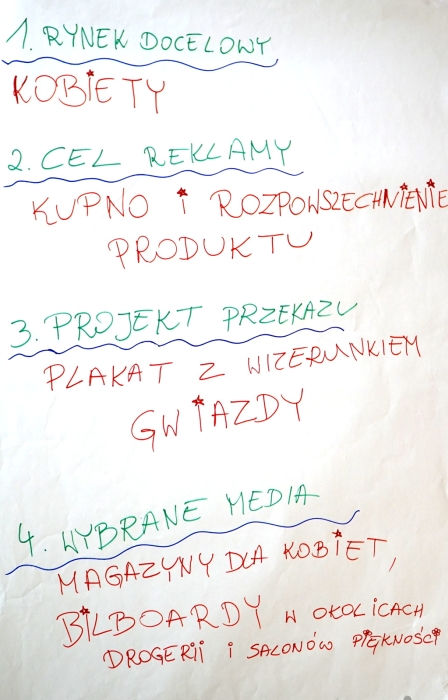 1. RYNEK DOCELOWY
KOBIETY
2. CEL REKLAMY
KUPNO i ROZPOWSZECHNIENIE
PRODUKTU
3. PROJEKT PRZEKAZU
PLAKAT Z WIZERUNKIEM
GWIAZDY
4. WYBRANE MEDIA
MAGAZYNY DLA KOBIET,
BILBOARDY W OKOLICACH
DROGERII i SALONÓW PIĘKNOŚCI